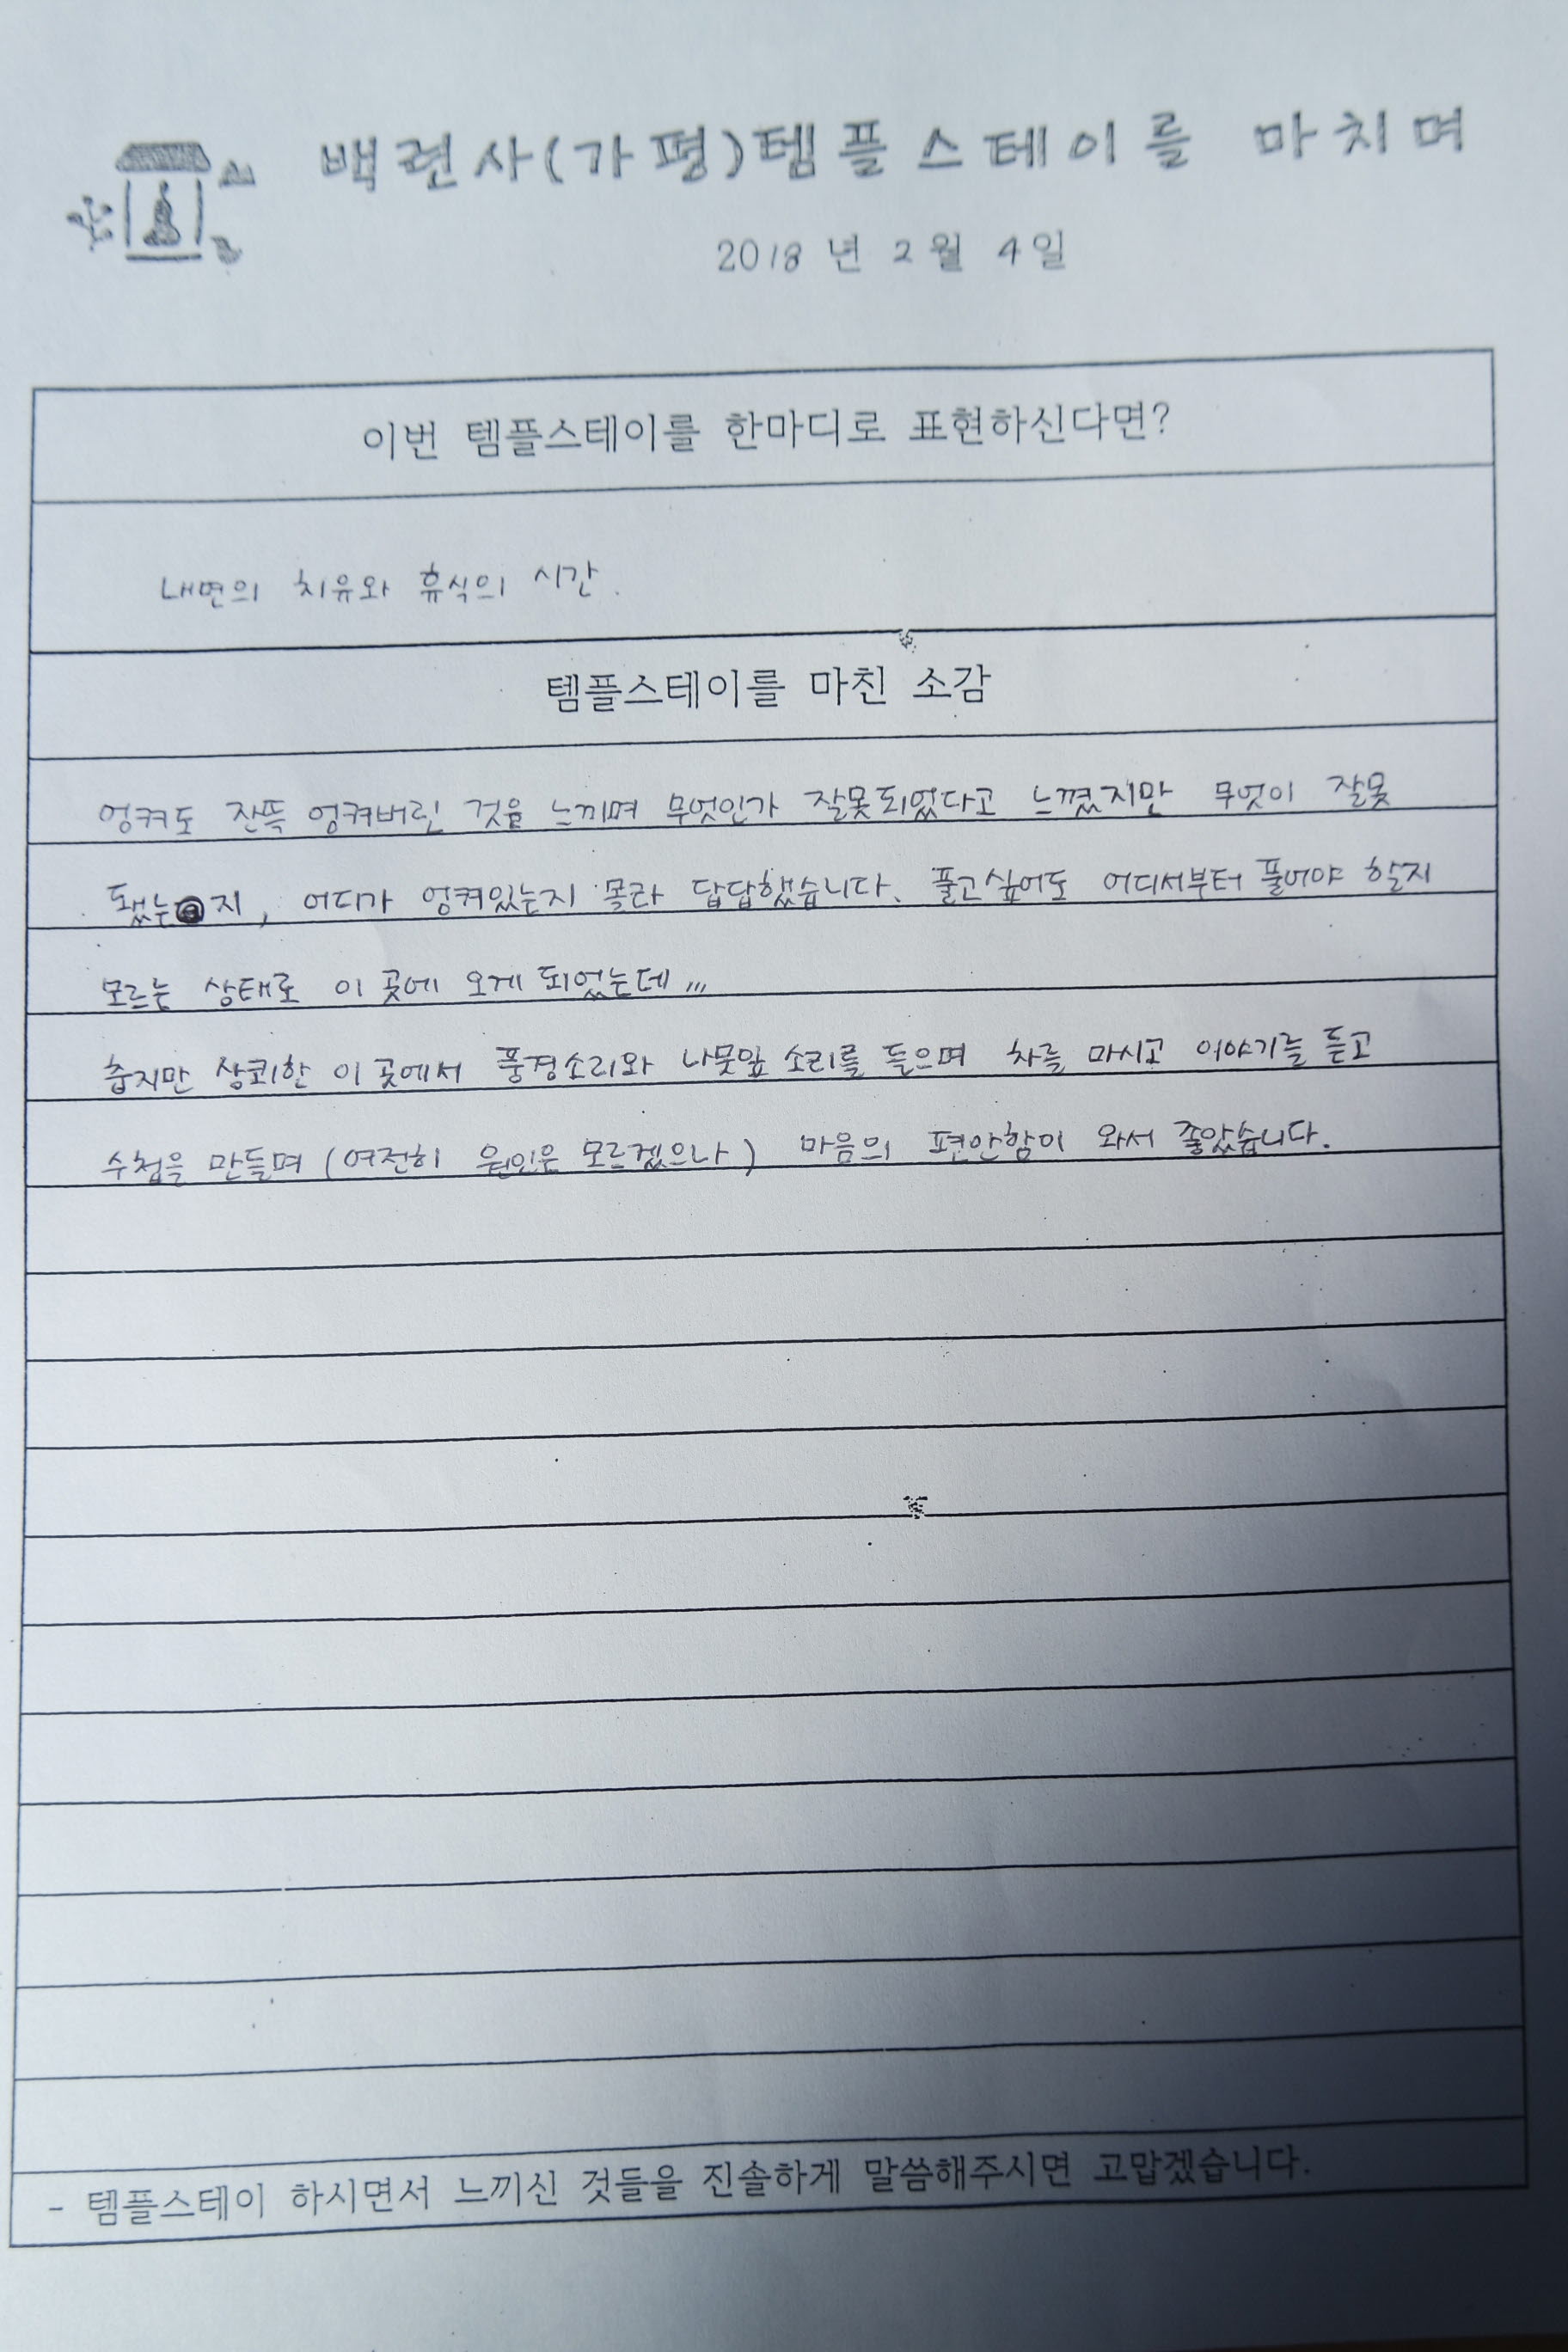 백련사(가평)템플스테이를 마치며
2018 년 2 월 4 일
이번 템플스테이를 한마디로 표현하신다면?
내면의 치유와 휴식의 시간.
템플스테이를 마친 소감
엉켜도 잔뜩 엉켜버린 것을 느끼며 무엇인가 잘못되었다고 느꼈지만 무엇이 잘못
됐는지, 어디가 엉켜있는지 몰라 답답했습니다. 풀고싶어도 어디서부터 풀어야 할지
모르는 상태로 이 곳에 오게 되었는데...
춥지만 상쾌한 이 곳에서 풍경소리와 나뭇잎 소리를 들으며 차를 마시고 이야기를 듣고
수첩을 만들며 (여전히 원인은 모르겠으나) 마음의 편안함이 와서 좋았습니다.
- 템플스테이 하시면서 느끼신 것들을 진솔하게 말씀해주시면 고맙겠습니다.